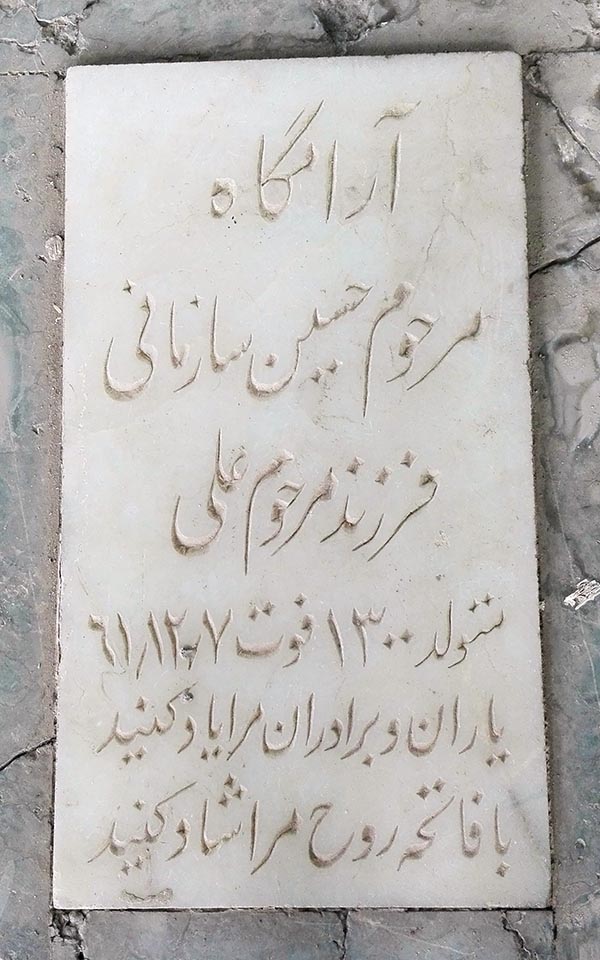 آرامگاه
مرحوم حسین سازمانی
فرزند مرحوم علی
متولد ۱۳۰۰ فوت ۶۱٫۱۲٫۷
یاران و برادران مرا یاد کنید
با فاتحه روح مرا شاد کنید